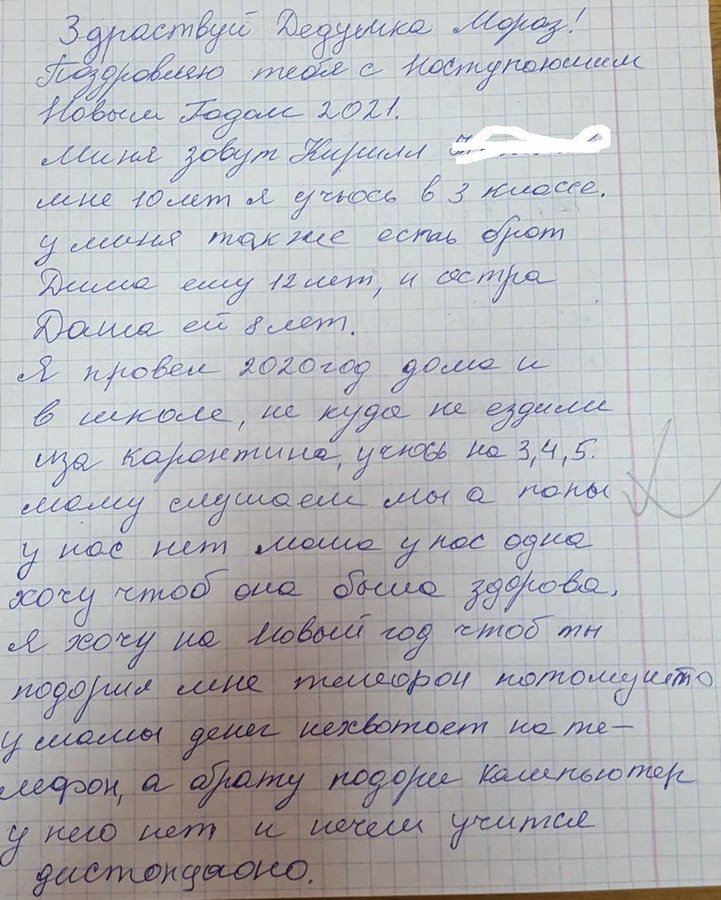 Здраствуй Дедушка Мороз!
Поздровляю тебя с Наступаюшим
Новым Годом 2021.
Миня зовут Кирилл
мне 10 лет я учюсь в 3 классе.
у миня также есть брат
Дима ему 12 лет, и систра
Даша ей 8 лет.
Я провел 2020 год дома и
в школе, не куда не ездили
иза карантина, учюсь на 3,4,5.
маму слушаем мы а папы
у нас нет мама у нас одна
хочу чтоб она была здорова.
Я хочу на Новый год чтоб ты
подорил мне телефон потомушто
у мамы денег нехватает на те-
лефон, а брату подори кампьютер
у него нет и нечем учится
дистонцаоно.